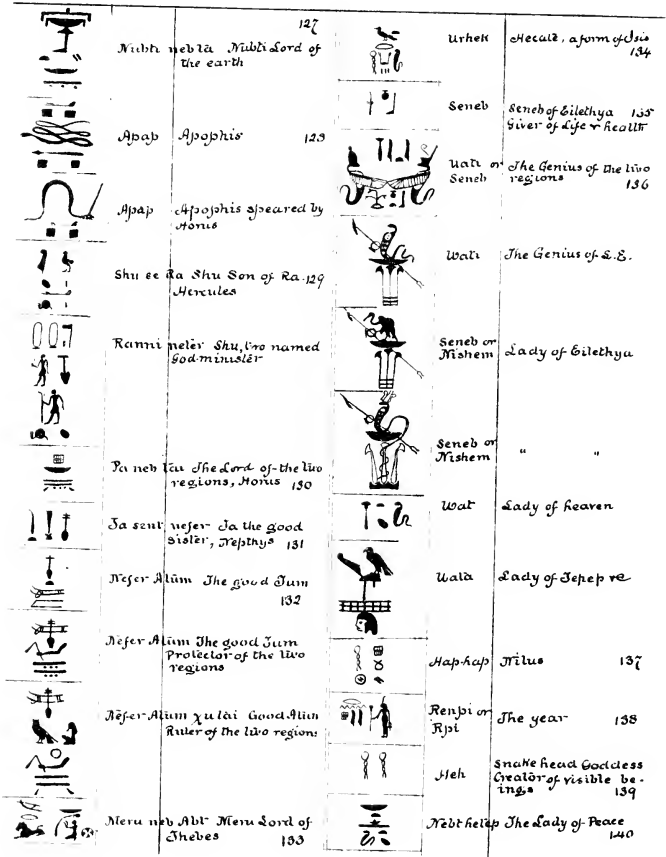 127
Nubti neb ta Nubti Lord of
the earth
Apap Apophis 128
Apap Apophis speared by
Horus
Shu ee Ra Shu Son of Ra 129
Hercules
Ranni neter Shu, two named
God minister
Pa neb tai The Lord of the two
regions, Horus 130
Ta sent nefer Ta the good
sister, Nepthys 131
Nefer Atum The good Tum
132
Nefer Atum The good Tum
Protector of the two
regions
Nefer Atum χu tai Good Atum
Ruler of the two regions
Meru neb Abt Meru Lord of
Thebes 133
Urhek Hecate, a form of Isis
134
Seneb Seneb of Eilethya 135
Giver of Life & health
Uati or The Genius of the two
Seneb regions 136
Wati The Genius of L.E.
Seneb or Lady of Eilethya
Nishem
Seneb or " "
Nishem
Wat Lady of heaven
Wata Lady of Tepep re
Hap-hap Nilus 137
Renpi or The year 138
Rpi
Heh Snake head Goddess
Creator of visible be-
ings 139
Nebt hetep The Lady of Peace
140